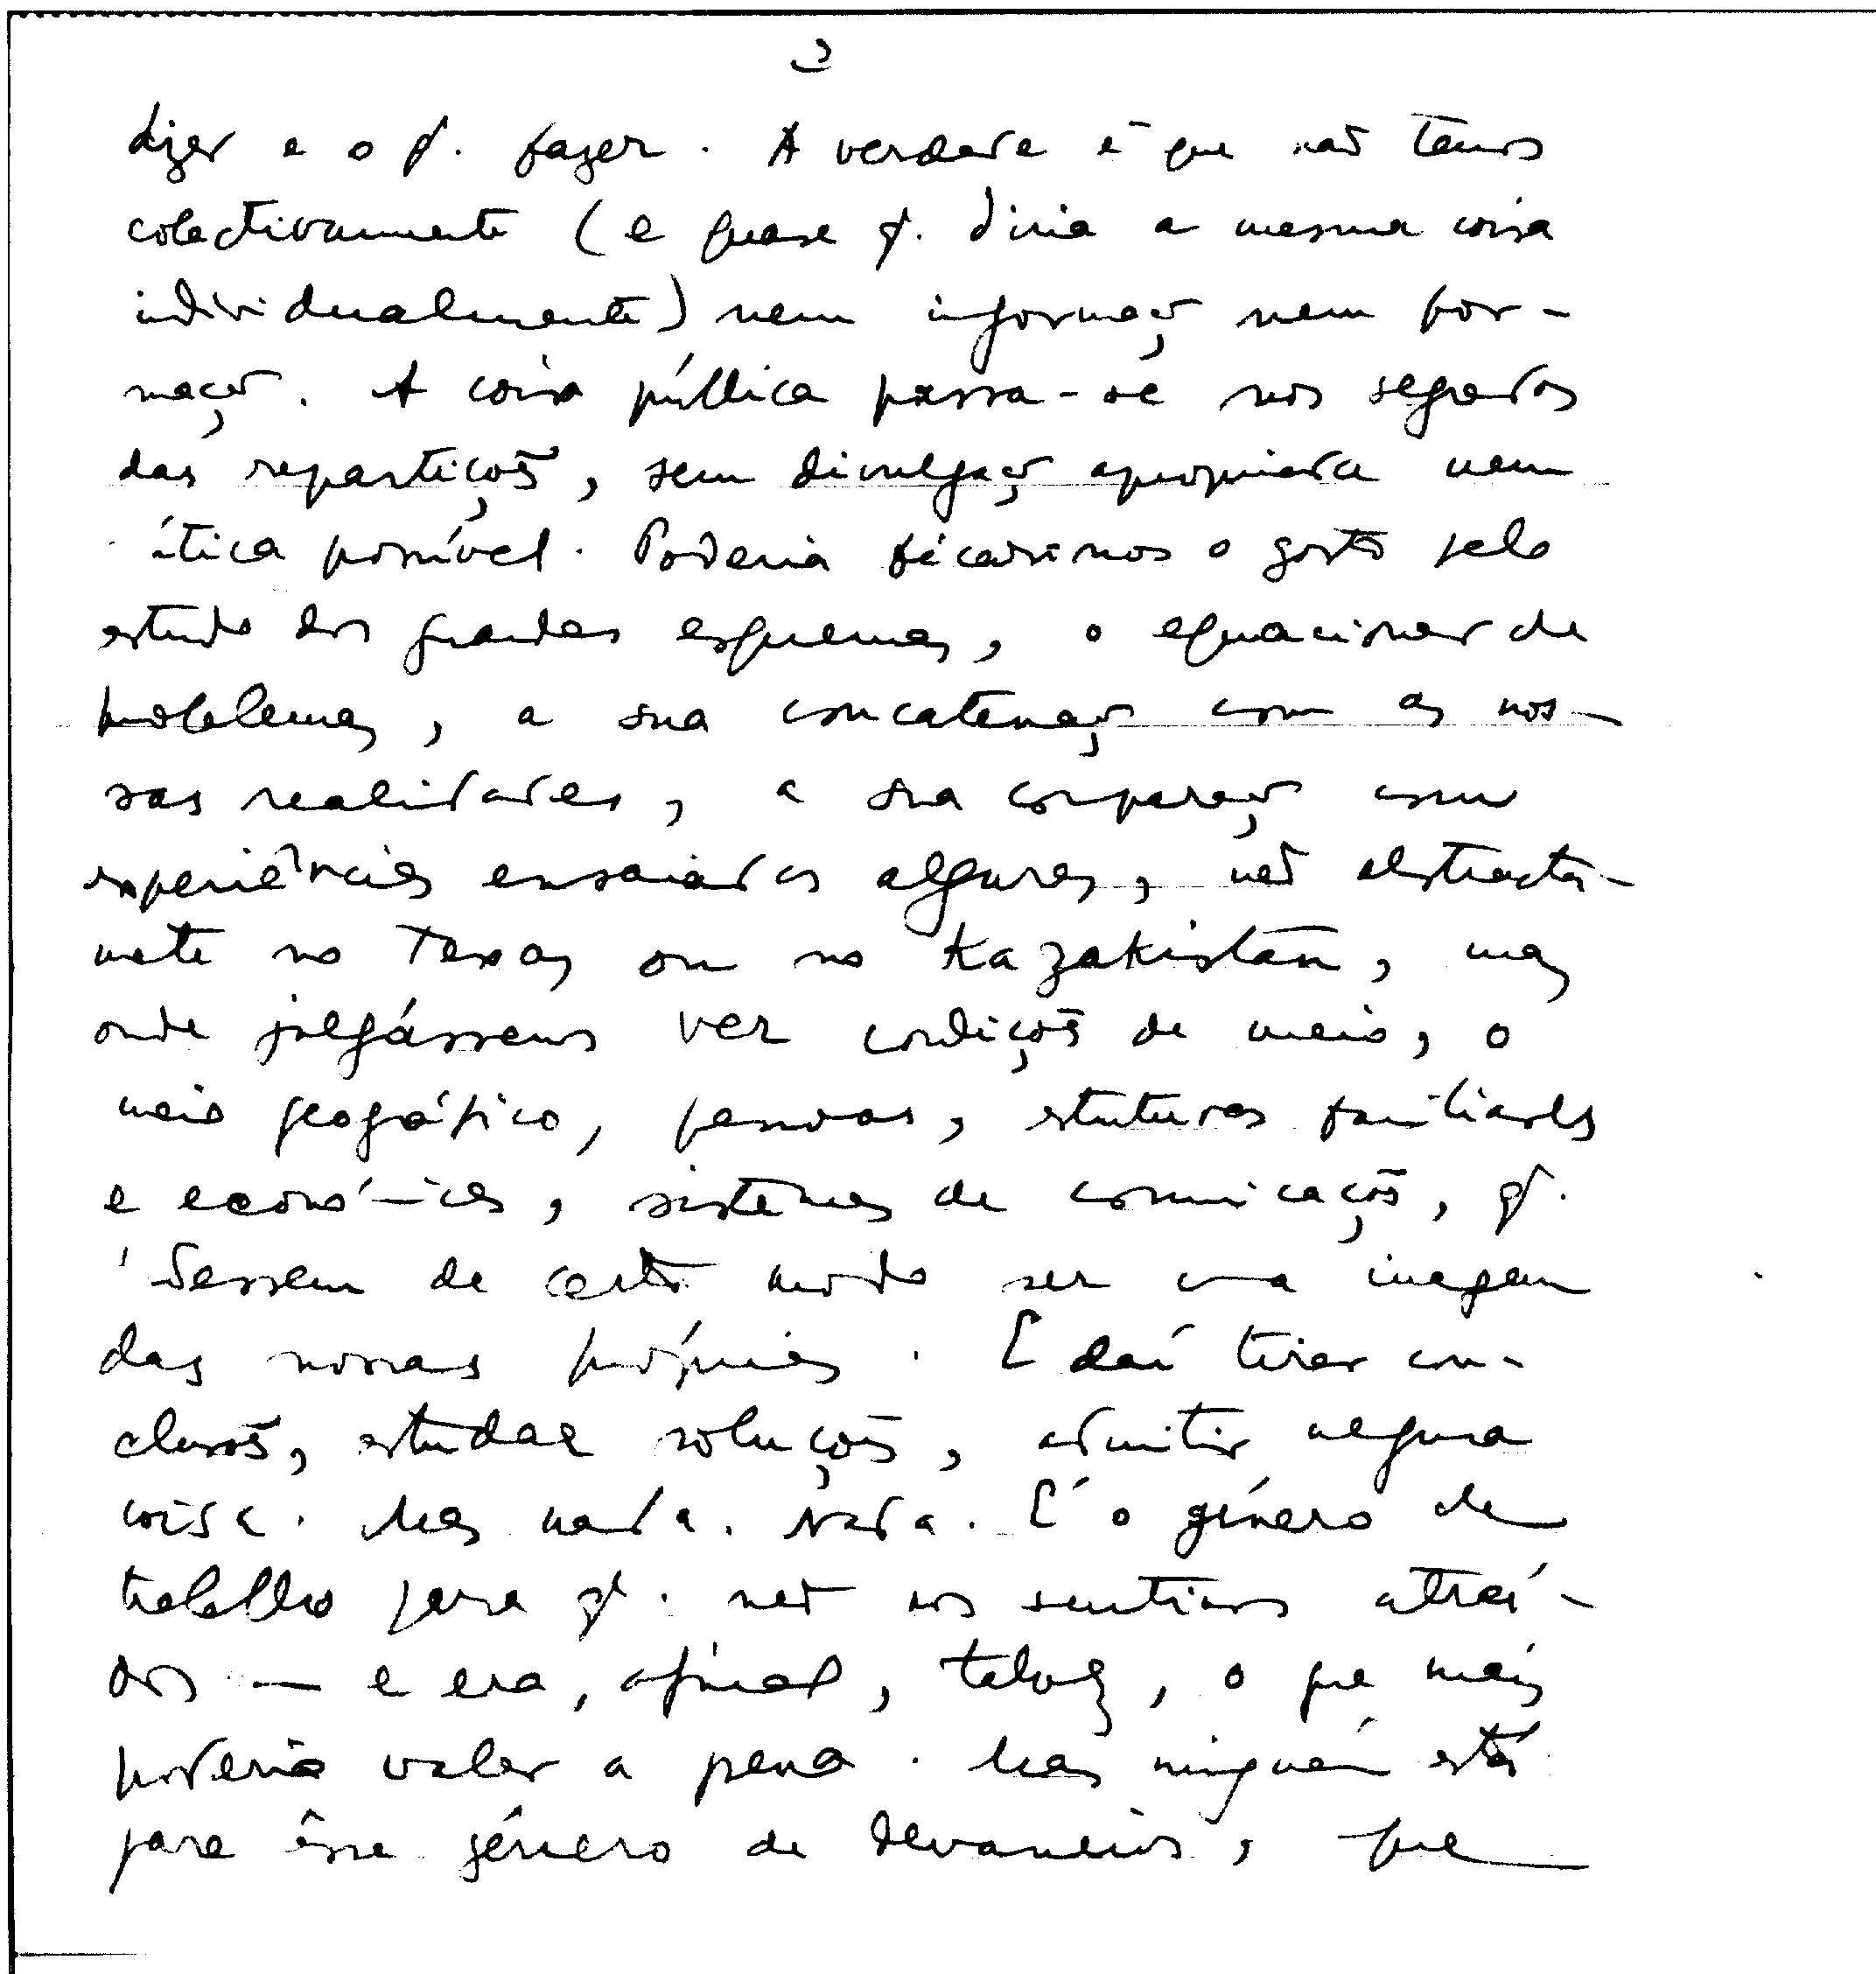 3
dizer e o q. fazer. A verdade é que não temos
colectivamente (e quase q. diria a mesma coisa
individualmente) nem informação nem for-
mação. A coisa pública passa-se nos segredos
das repartições, sem divulgação apropriada nem
ítica possível. Poderia ficar-nos o gosto pelo
estudo dos grandes esquemas, o equacionar de
problemas, a sua concatenação com as nos-
sas realidades, a sua comparação com
experiências ensaiadas algures, não abstracta-
mente no Texas ou no Kazakistan, mas
onde julgássemos ver condições de meio, o
meio geográfico, pessoas, estruturas familiares
e económicas, sistemas de comunicações, q.
dessem de certo modo ser uma imagem
das nossas próprias. E daí tirar con-
clusões, estudar soluções, admitir alguma
coisa. Mas nada. Nada. É o género de
trabalho para q. não nos sentimos atraí-
dos — e era, afinal, talvez, o que mais
poderia valer a pena. Mas ninguém está
para êsse género de devaneios, que